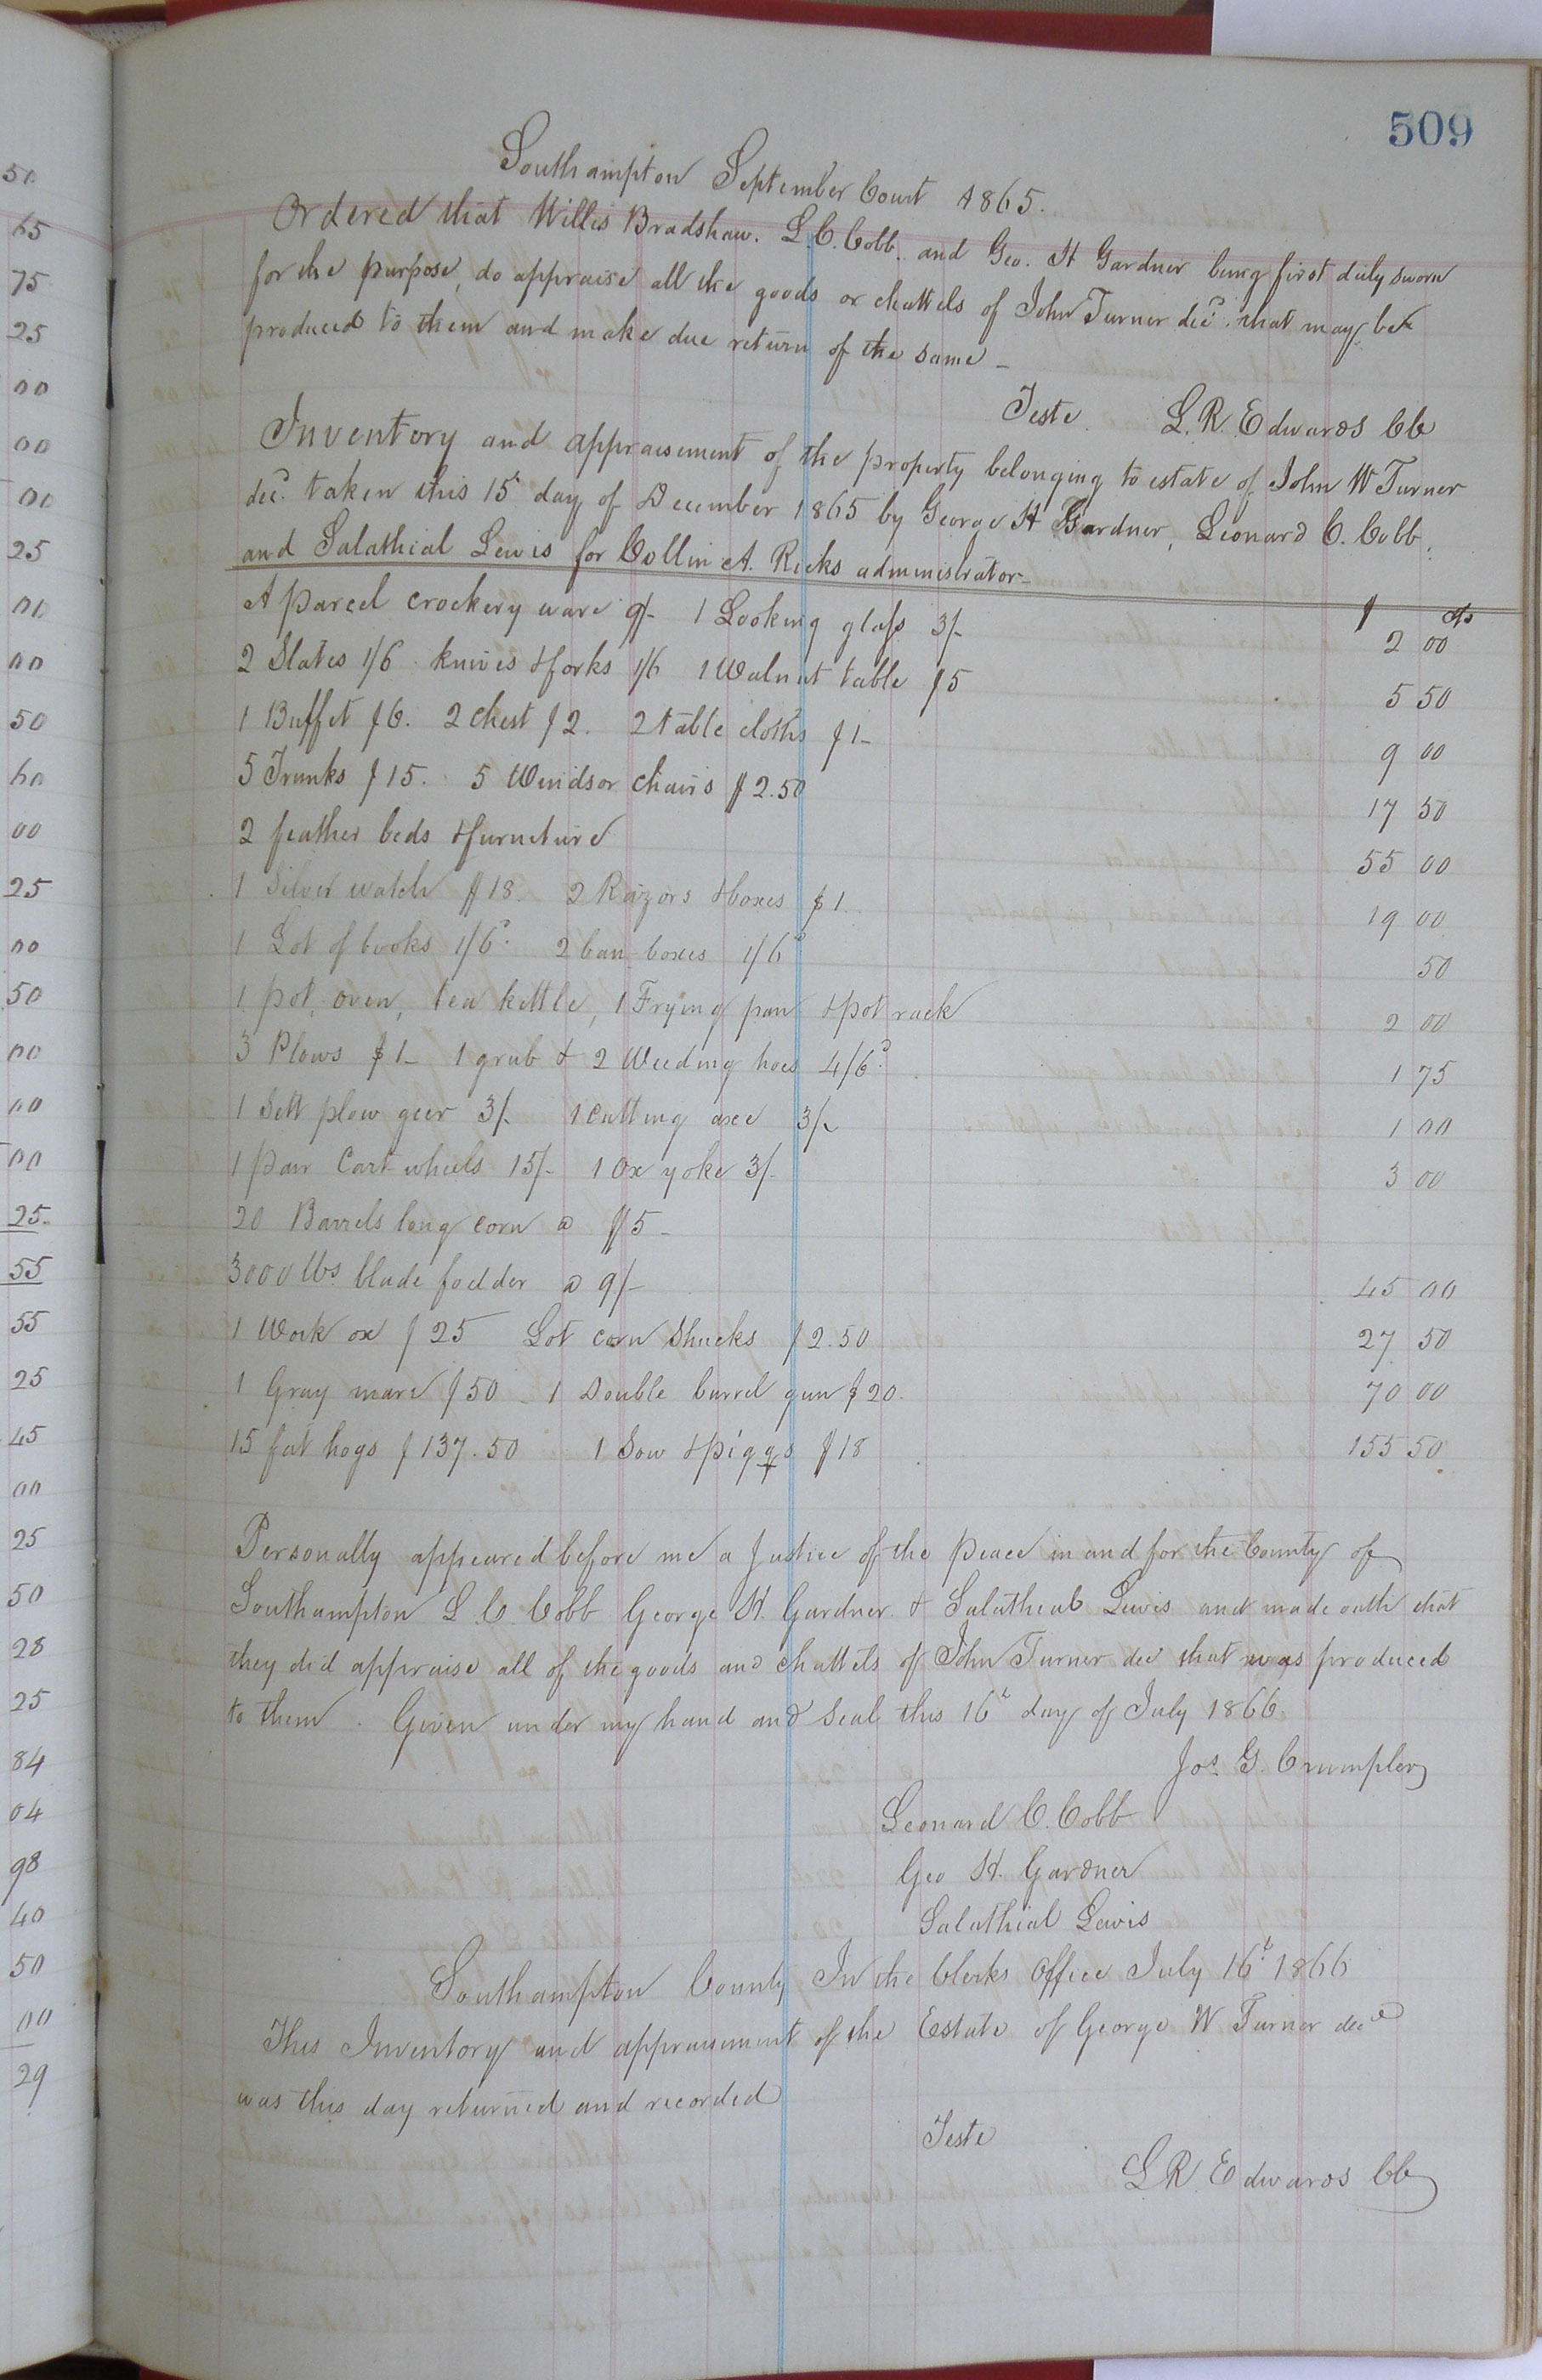 509
Southampton September Court 1865.
Ordered that Willis Bradshaw. L. C. Cobb. and Geo. H Gardner being first duly sworn
for the purpose, do appraise all the goods or chattels of John Turner decd. that may be
produced to them and make due return of the same –
Teste. L. R. Edwards CC
Inventory and appraisement of the property belonging to estate of John W Turner
decd. taken this 15th day of December 1865 by George H Gardner, Leonard C. Cobb.
and Salathial Lewis for Collin A. Ricks administrator–
$ cts
A parcel crockery ware 9/- 1 Looking glass 3/- 2 00
2 Slates 1/6 knives & forks 1/6 1 Walnut table $5 5 50
1 Buffet $6. 2 chest $2. 2 table cloths $1– 9 00
5 Trunks $15. 5 Windsor chairs $2.50 17 50
2 feather beds & furneture 55 00
1 Silver watch $18. 2 Razors & boxes $1. 19 00
1 Lot of books 1/6d. 2 ban-boxes 1/6d 50
1 pot, oven, tea kettle, 1 Frying pan & pot rack 2 00
3 Plows $1– 1 grub & 2 Weeding hoes 4/6d. 1 75
1 Sett plow geer 3/- 1 cutting axe 3/- 1 00
1 pair Cart wheels 15/- 1 Ox yoke 3/- 3 00
20 Barrels long corn @ $5–
3000 lbs. blade fodder @ 9/- 45 00
1 Work ox $25 Lot corn Shucks $2.50 27 50
1 Gray mare $50 – 1 Double barrel gun $20. 70 00
15 fat hogs $137.50 1 Sow & piggs $18 155 50
Personally appeared before me a Justice of the Peace in and for the County of
Southampton L. C. Cobb George H. Gardner & Salathial Lewis and made oath that
they did appraise all of the goods and chattels of John Turner dec that was produced
to them. Given under my hand and seal this 16th day of July 1866
Jos. G. Crumpler
Leonard C. Cobb
Geo H. Gardner
Salathial Lewis
Southampton County In the Clerks Office July 16th 1866
This Inventory and appraisement of the Estate of George W Turner decd
was this day returned and recorded
Teste
L R Edwards CC